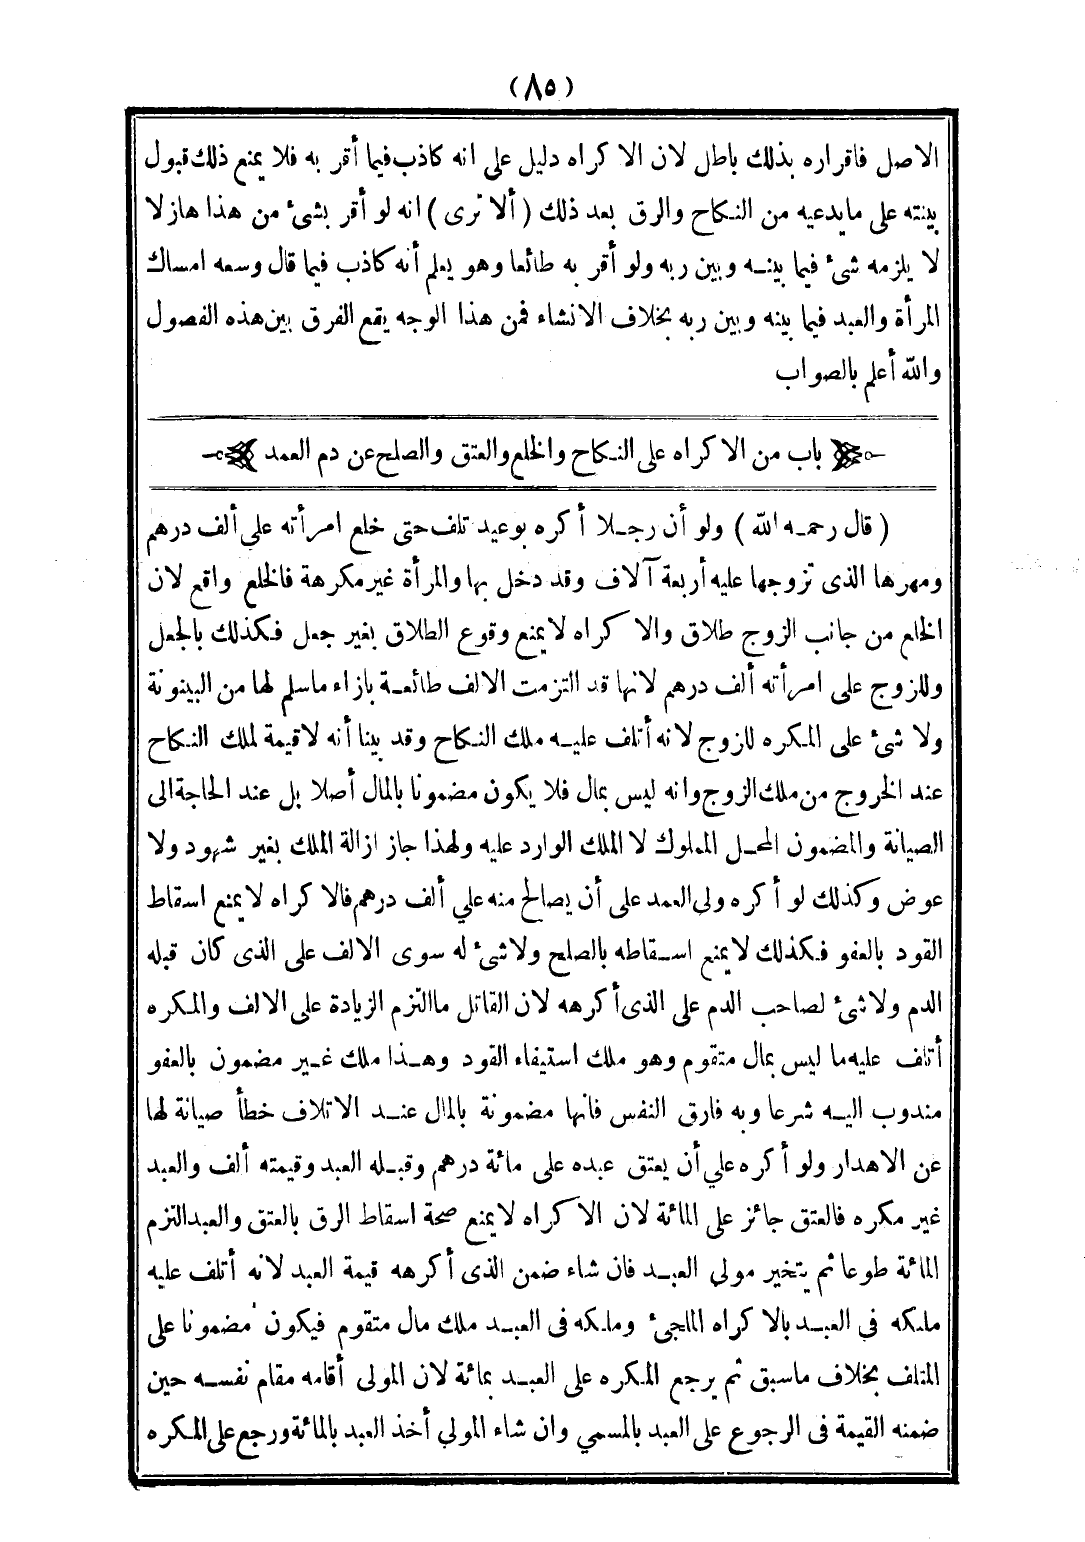 (٨٥)
الاصل فاقراره بذلك باطل لان الاكراه دليل على انه كاذب فيما أقر به فلا يمنع ذلك قبول
بينته على مايدعيه من النكاح والرق بعد ذلك (ألا ترى) انه لو أقر بشئ من هذا هازلا
لا يلزمه شئ فيما بينه وبين ربه ولو أقر به طائعا وهو يعلم أنه كاذب فيما قال وسعه امساك
المرأة والعبد فيما بينه وبين ربه بخلاف الانشاء فمن هذا الوجه يقع الفرق بين هذه الفصول
والله أعلم بالصواب
باب من الاكراه على النكاح والخلع والعتق والصلح عن دم العمد
(قال رحمه الله) ولو أن رجلا أكره بوعيد تلف حتى خلع امرأته على ألف درهم
ومهرها الذى تزوجها عليه أربعة آلاف وقد دخل بها والمرأة غير مكرهة فالخلع واقع لان
الخلع من جانب الزوج طلاق والاكراه لا يمنع وقوع الطلاق بغير جعل فكذلك بالجعل
وللزوج على امرأته ألف درهم لانها قد التزمت الالف طائعة بازاء ماسلم لها من البينونة
ولا شئ على المكره للزوج لانه أتلف عليه ملك النكاح وقد بينا أنه لاقيمة لملك النكاح
عند الخروج من ملك الزوج وانه ليس بمال فلا يكون مضمونا بالمال أصلا بل عند الحاجة الى
الصيانة والمضمون المحل المملوك لا الملك الوارد عليه ولهذا جاز ازالة الملك بغير شهود ولا
عوض وكذلك لو أكره ولى العمد على أن يصالح منه علي ألف درهم فالاكراه لا يمنع اسقاط
القود بالعفو فكذلك لا يمنع اسقاطه بالصلح ولاشئ له سوى الالف على الذى كان قبله
الدم ولاشئ لصاحب الدم على الذى أكرهه لان القاتل ماالتزم الزيادة على الالف والمكره
أتلف عليه ما ليس بمال متقوم وهو ملك استيفاء القود وهذا ملك غير مضمون بالعفو
مندوب اليه شرعا وبه فارق النفس فانها مضمونة بالمال عند الاتلاف خطأ صيانة لها
عن الاهدار ولو أكره علي أن يعتق عبده على مائة درهم وقبله العبد وقيمته ألف والعبد
غير مكره فالعتق جائز على المائة لان الاكراه لا يمنع صحة اسقاط الرق بالعتق والعبد التزم
المائة طوعا ثم يتخير مولى العبد فان شاء ضمن الذى أكرهه قيمة العبد لانه أتلف عليه
ملكه في العبد بالاكراه الملجئ وملكه فى العبد ملك مال متقوم فيكون مضمونا على
المتلف بخلاف ماسبق ثم يرجع المكره على العبد بمائة لان المولى أقامه مقام نفسه حين
ضمنه القيمة فى الرجوع على العبد بالمسمي وان شاء المولي أخذ العبد بالمائة ورجع على المكره